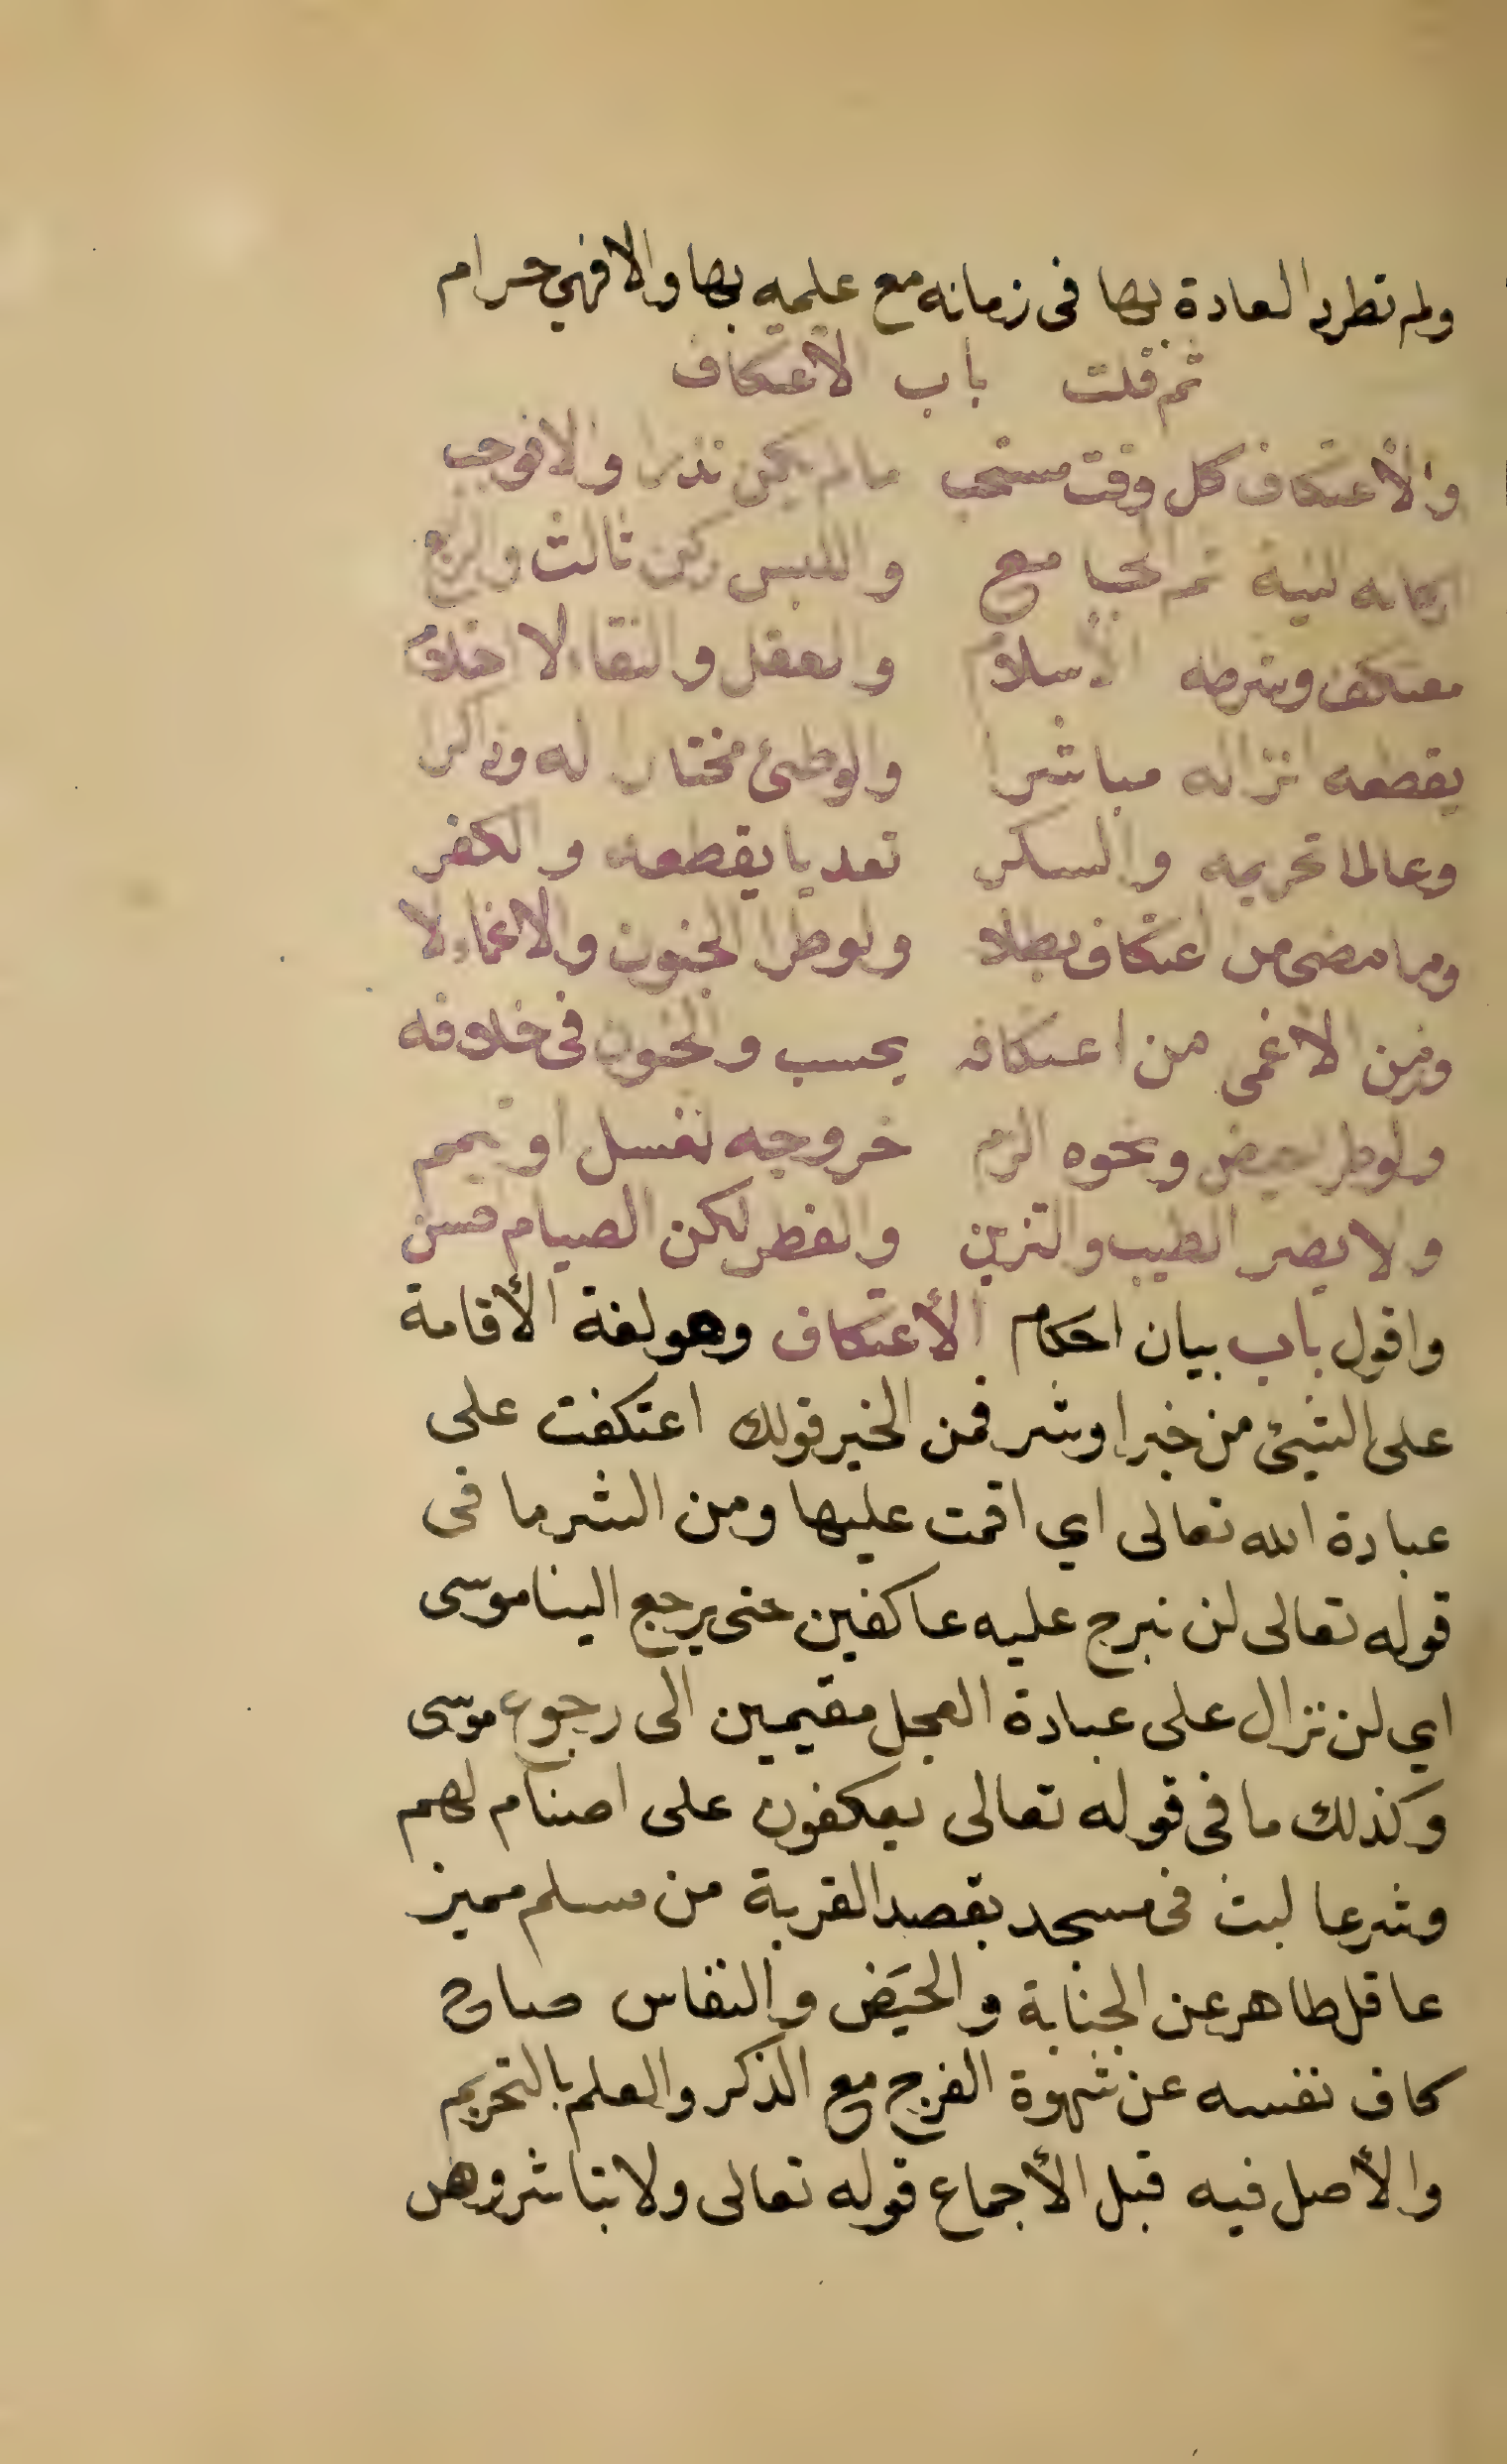 ولم تطرد العادة بها فى زمانه مع علمه بها والا فهي حرام
ثم قلت باب الاعتكاف
والأعتكاف كل وقت مستحب مالم يكن نذرا والا فوجب
اركانه النية ثم الجامع واللبس ركن ثالث والرابع
معتكف وشرطه الأسلام والعقل والنقاء لا خلاف
يقطعه انزاله مباشرا والوطئ مختارا له وذاكرا
وعالما تحريمه والسكر تعديا يقطعه والكفر
وما مضى من اعتكاف بطلا ولو طرا الجنون والاغماء لا
وزمن الاغمى من اعتكافه يحسب والجنون فى خلافه
ولو طرا حيض ونحوه الزم خروجه لغسل او تيمم
ولا يضر الطيب والتزين والفطر لكن الصيام حسن
واقول باب بيان احكام الأعتكاف وهو لغة الأقامة
على الشيئ من خير او شر فمن الخير قولك اعتكفت على
عبادة الله تعالى اي اقمت عليها ومن الشر ما فى
قوله تعالى لن نبرح عليه عاكفين حتى يرجع الينا موسى
اي لن نزال على عبادة العجل مقيمين الى رجوع موسى
وكذلك ما فى قوله تعالى يعكفون على اصنام لهم
وشرعا لبث فى مسجد بقصد القربة من مسلم مميز
عاقل طاهر عن الجنابة والحيَض والنفاس صاح
كاف نفسه عن شهوة الفرج مع الذكر والعلم بالتحريم
والأصل فيه قبل الأجماع قوله تعالى ولا تباشروهن